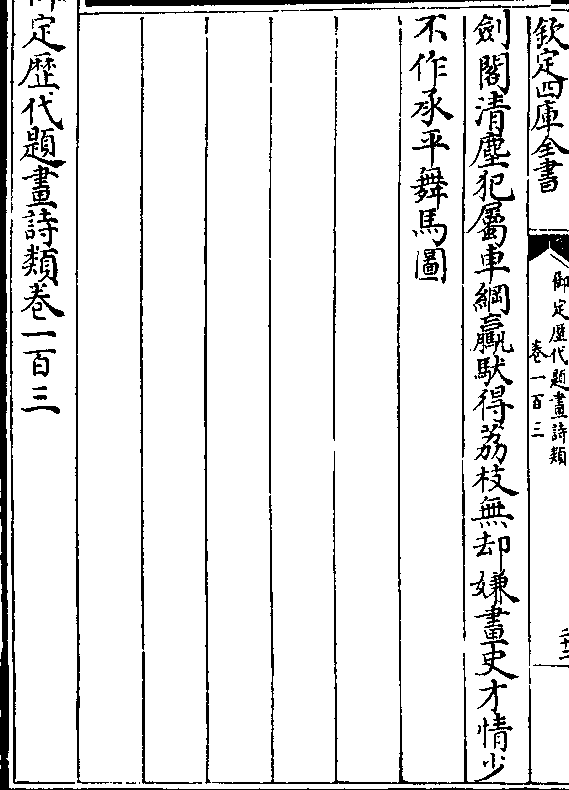 欽定四庫全書
御定歷代題畫詩類
卷一百三
二十二
劍閣清塵犯屬車綱羸馱得荔枝無却嫌畫史才情少
不作承平舞馬圖
御定歷代題畫詩類卷一百三